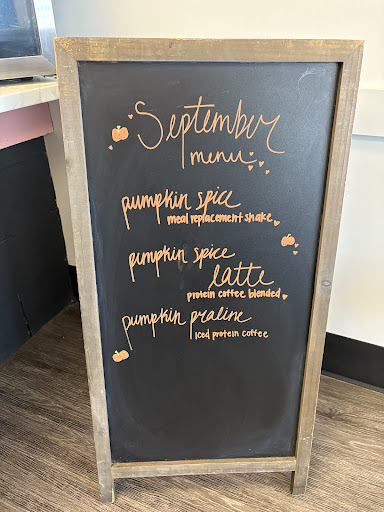 September
menu
pumpkin spice
meal replacement shake
pumpkin spice
latte
protein coffee blended
pumpkin praline
iced protein coffee